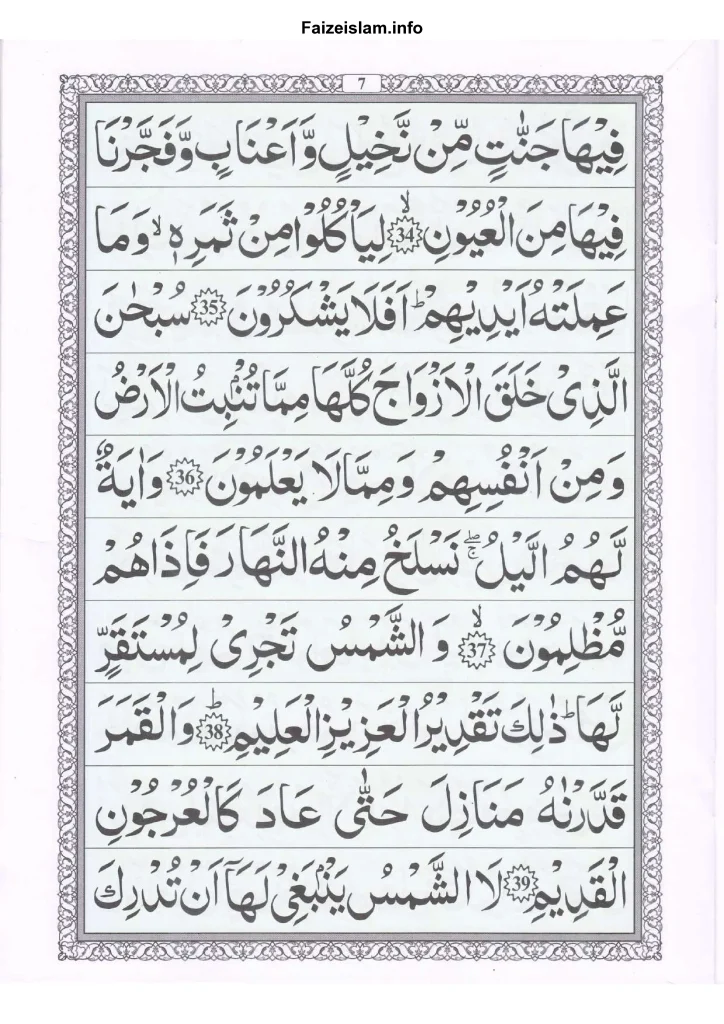 Faizeislam.info
7
فِيْهَا جَنّٰتٍ مِّنْ نَّخِيْلٍ وَّاَعْنَابٍ وَّفَجَّرْنَا
فِيْهَا مِنَ الْعُيُوْنِ ۙ34 لِيَاْكُلُوْا مِنْ ثَمَرِهٖ ۙ وَمَا
عَمِلَتْهُ اَيْدِيْهِمْ ؕ اَفَلَا يَشْكُرُوْنَ 35 سُبْحٰنَ
الَّذِیْ خَلَقَ الْاَزْوَاجَ كُلَّهَا مِمَّا تُنْۢبِتُ الْاَرْضُ
وَمِنْ اَنْفُسِهِمْ وَمِمَّا لَا يَعْلَمُوْنَ 36 وَاٰيَةٌ
لَّهُمُ الَّيْلُ ۖۚ نَسْلَخُ مِنْهُ النَّهَارَ فَاِذَا هُمْ
مُّظْلِمُوْنَ ۙ37 وَ الشَّمْسُ تَجْرِیْ لِمُسْتَقَرٍّ
لَّهَا ؕ ذٰلِكَ تَقْدِيْرُ الْعَزِيْزِ الْعَلِيْمِ ؕ38 وَالْقَمَرَ
قَدَّرْنٰهُ مَنَازِلَ حَتّٰى عَادَ كَالْعُرْجُوْنِ
الْقَدِيْمِ 39 لَا الشَّمْسُ يَنْۢبَغِیْ لَهَاۤ اَنْ تُدْرِكَ